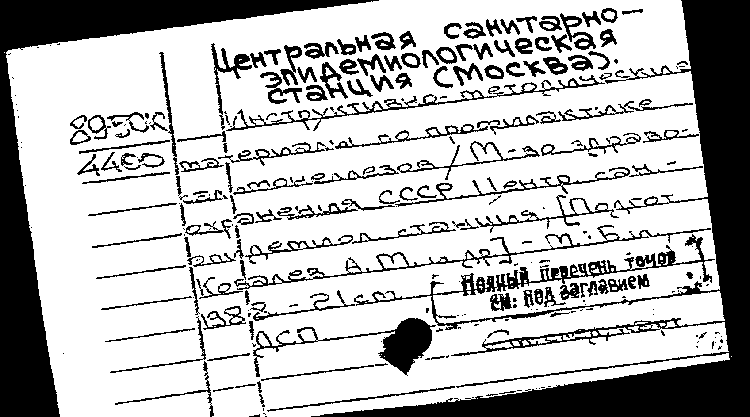 Центральная санитарно-
эпидемиологическая
станция (Москва).
8950К
4400
Инструктивно-методические
материалы по профилактике
сальмонеллезов / М-во здраво-
охранения СССР, Центр. сан.-
эпидемиол. станция; [Подгот.
Ковалев А.М. и др.] - М.: Б.и.,
1988 - 21 см.
Полный перечень томов
см. под заглавием
ДСП
См. след. карт.